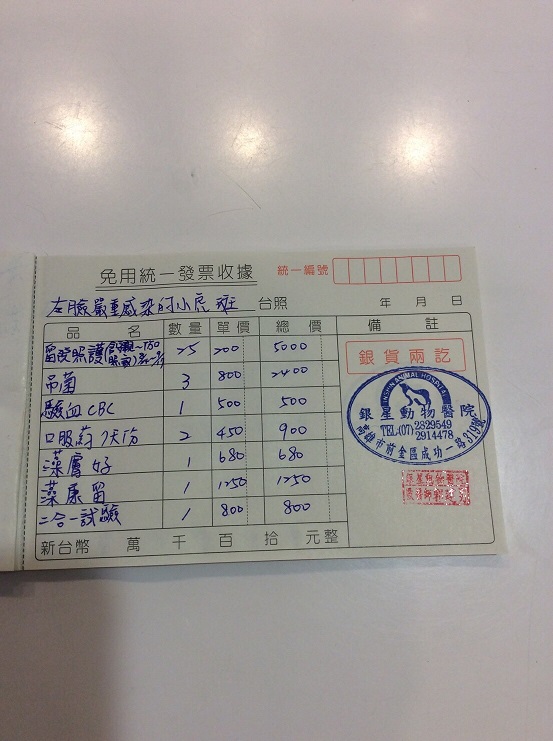 免用統一發票收據
統一編號
左臉嚴重感染的小虎斑 台照 年 月 日
品 名 數量 單價 總 價 備 註
25 200 5000
吊菌 3 800 2400
驗血CBC 1 500 500
口服藥7天份 2 450 900
藻膚好 1 680 680
藻康留 1 1250 1250
二合一試驗 1 800 800
新台幣 萬 千 百 拾 元整
銀貨兩訖
INSHIN ANIMAL HOSPITAL
銀星動物醫院
TEL:(07)2329549
2914478
高雄市前金區成功一路319號